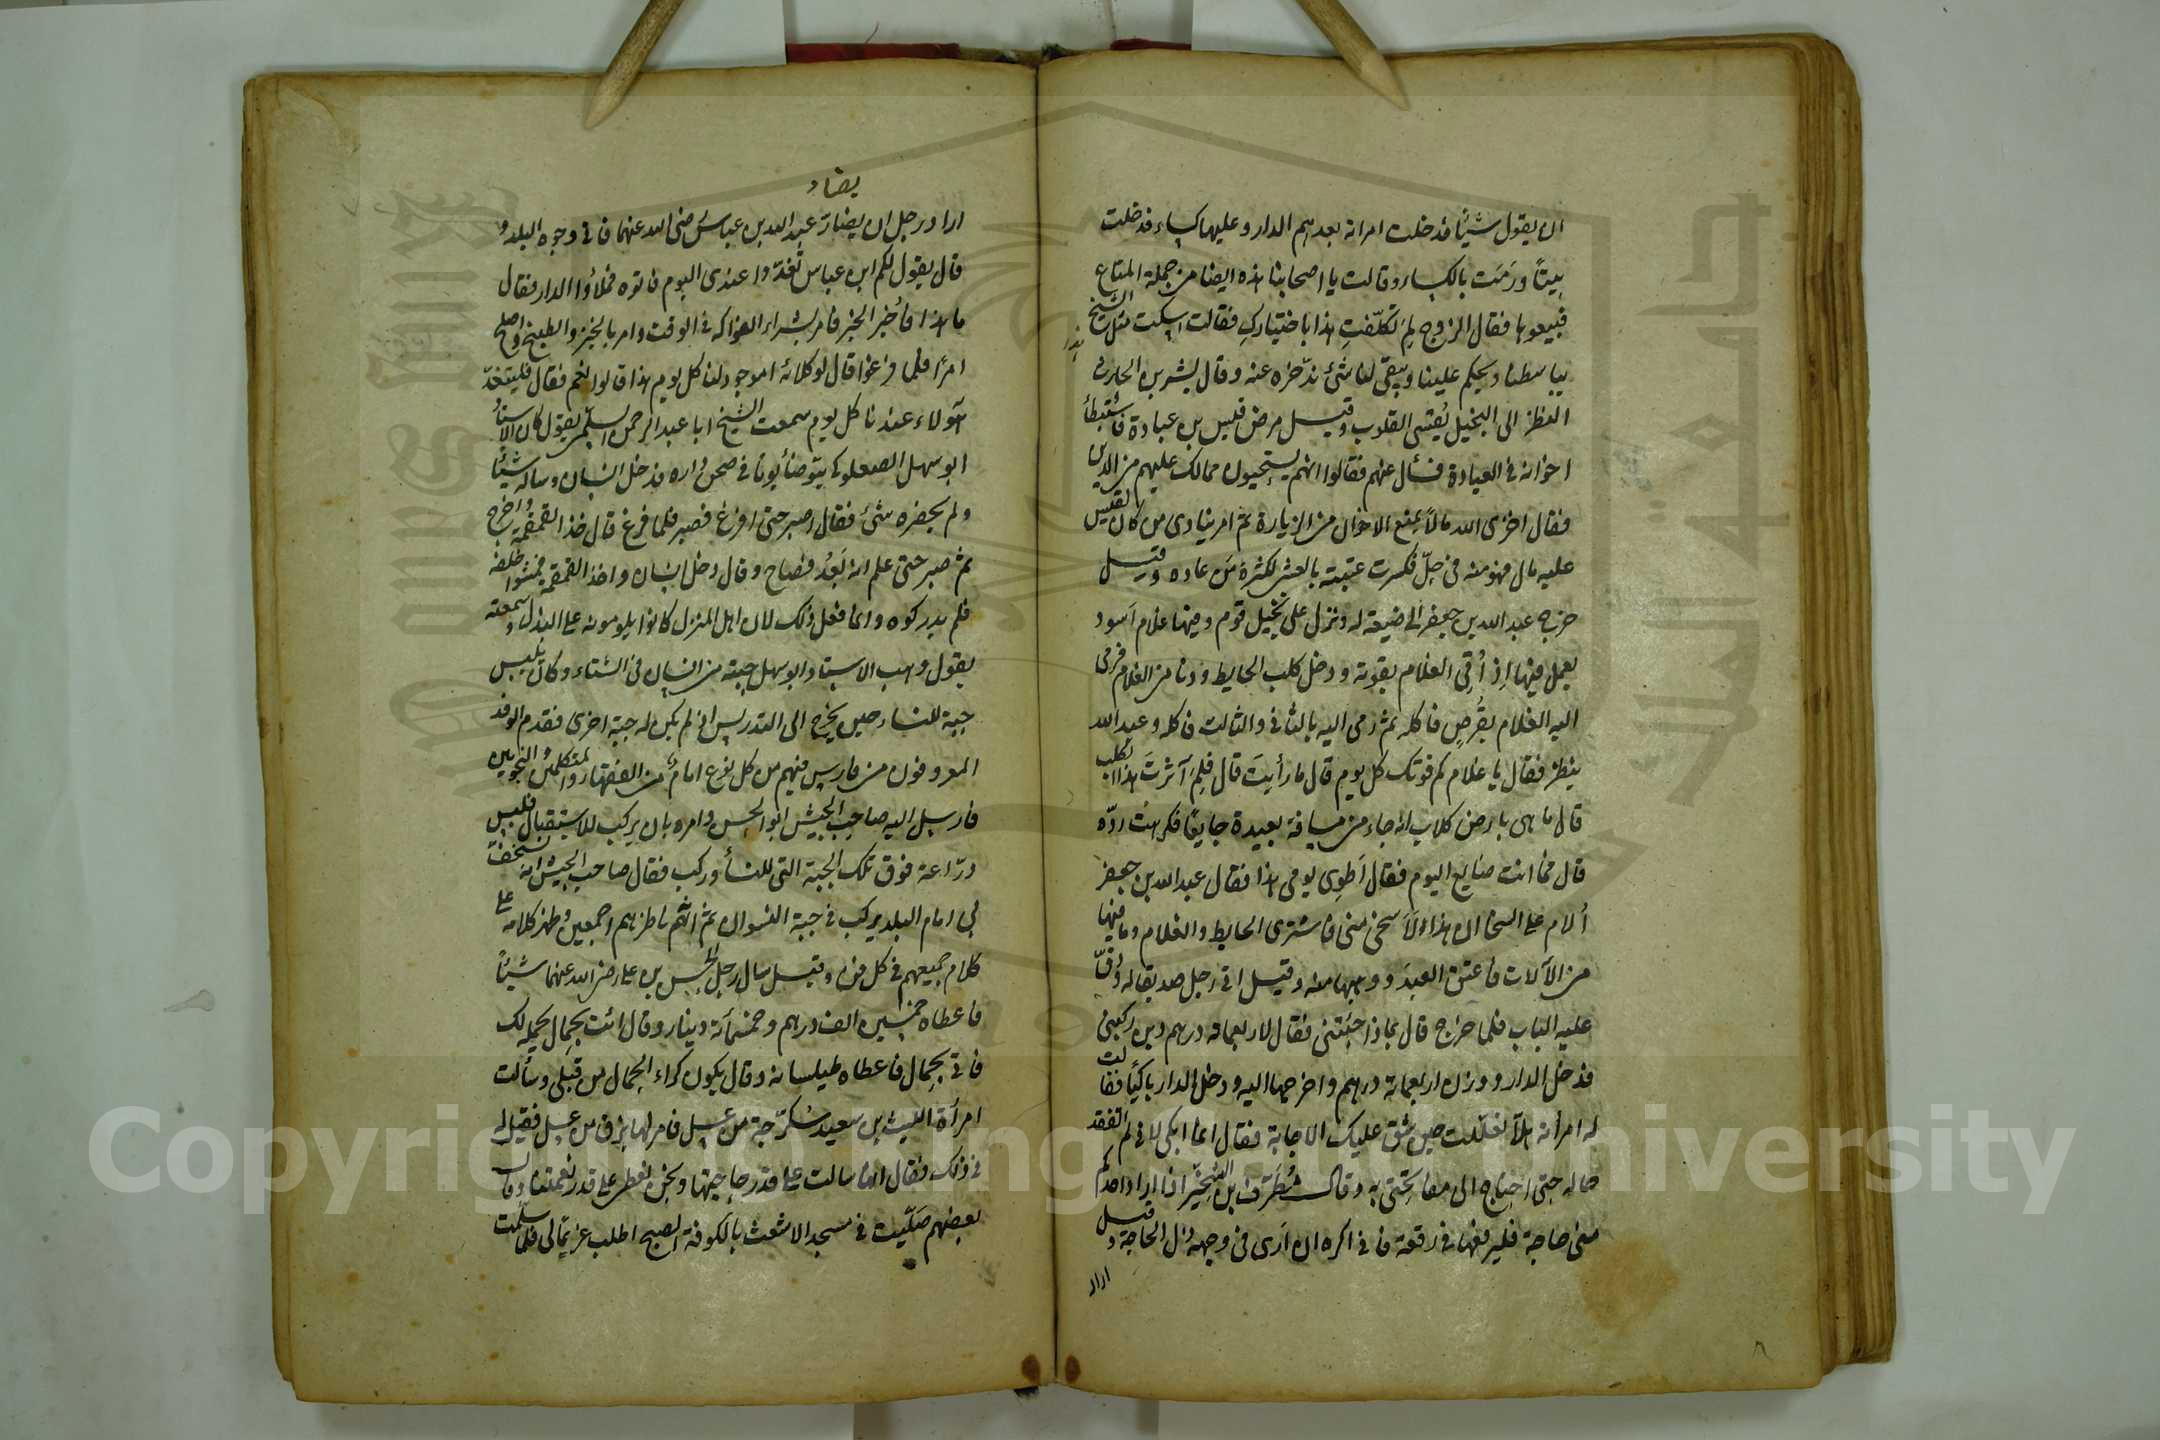 ان يقول شيئا فدخلت امراته بعدهم الدار وعليها كساء فدخلت
بيتاً ورَمَت بالكساء وقالت يا اصحابنا هذه ايضا من جملة المتاع
فبيعوها فقال الزوج لِمَ تكلّفتِ هذا باختيارك فقالت اسكت مثل الشيخ
يباسطنا ويحكم علينا ويبقى لنا شئ ندّخره عنه وقال بشر بن الحارث
النظر الى البخيل يُقسّى القلوب وقيل مرض قيس بن عبادة فاستبطأ
اخوانه فى العيادة فسأل عنهم فقالوا انهم يستحيون ممالك عليهم من الدين
فقال اخزى الله مالاً يمنع الاخوان من الزيارة ثم امر ينادى من كان لقيس
عليه مال فهو منه فى حِلّ فكسرت عتبته بالعشى لكثرة مَن عاده وقيل
خرج عبد الله بن جعفر الى ضيعة له ونزل على نخيل قوم وفيها غلام اَسود
يعمل فيها اِذ اُتى الغلام بقوته ودخل كلب الحايط ودنا من الغلام فرمى
اليه الغلام بقُرصٍ فاكله ثم رمى اليه بالثانى والثالث فاكله وعبد الله
ينظر فقال يا غلام كم قوتك كل يوم قال ما رأيتَ قال فلِمَ آثرتَ هذا الكلب
قال ما هى بارض كلاب انه جاء من مسافة بعيدة جايعًا فكرهت ردّه
قال فما انت صانع اليوم فقال اَطوِى يومى هذا فقال عبد الله بن جعفر
أُلام على السخا ان هذا لاَسخى منى فاشترى الحايط والغلام وما فيها
من الآلات فاعتق العبدَ ووهبها منه وقيل اتى رجل صديقا له ودُقّ
عليه الباب فلما خرج قال لماذا جئتنى فقال لاربعمائة درهم دين ركبنى
فدخل الدار ووزن اربعمائة درهم واخرجها اليه ودخل الدار باكيًا فقالت
له امرأته هلاّ تعلّلت حين شق عليك الاجابة فقال انما ابكى لانى لم اتفقد
حاله حتى احتاج الى مفاتحتى به وقال مُطَرِّف بن الشِخّير اذا اراد احدكم
منى حاجة فليرفعها فى رقعة فانى اكره ان اَرى فى وجهه ذل الحاجة وقيل
اراد
يضاد
اراد رجل ان يضارّ عبد الله بن عباس رضى الله عنهما فاتى وجوه البلد و
قال يقول لكم ابن عباس تغدّوا عندى اليوم فاتوه فملأوا الدار فقال
ما هذا فأُخبر الخبر فامر بشراء الفواكه فى الوقت وامر بالخبز والطبيخ واصلح
امرًا فلما فرغوا قال لوكلائه اموجود لنا كل يوم هذا قالوا نعم فقال فليتغدّ
هؤلاء عندنا كل يوم سمعت الشيخ ابا عبد الرحمن السلمى يقول كان الاستاذ
ابو سهل الصعلوكى يتوضأ يوما فى صحن داره فدخل انسان وساله شيئًا
ولم يحضره شئ فقال اصبر حتى افرغ فصبر فلما فرغ قال خذ القمقمة واخرج
ثم صبر حتى علم انه بَعُد فصاح وقال دخل انسان واخذ القمقمة فمشوا خلفه
فلم يدركوه وانما فعل ذلك لان اهل المنزل كانوا يلومونه على البذل وسمعته
يقول وهب الاستاد ابو سهل جبته من انسان فى الشتاء وكان يلبس
جبة للنساء حين يخرج الى التدريس اذ لم يكن له جبة اخرى فقدم الوفد
المعروفون من فارس فيهم من كل نوع امام من الفقهاء والمتكلمين والنحويين
فارسل اليه صاحب الجيش ابو الحسن وامره بان يركب للاستقبال فلبس
درّاعة فوق تلك الجبة التى للنسأ وركب فقال صاحب الجيش انه يستخفّ
بى امام البلد يركب فى جبة النسوان ثم انهم ناظرهم اجمعين وظهر كلامه على
كلام جميعهم فى كل فن وقيل سال رجل الحسن بن على رضى الله عنهما شيئًا
فاعطاه خمسين الف درهم وخمسمأئة دينار وقال ائت بحِمال يحمله لك
فاتى بحِمال فاعطاه طيلسانه وقال يكون كراء الحِمال من قبلى وسألت
امرأة الليث بن سعيد سُكرّجة من عسل فامر لها بزق من عسل فقيل له
فى ذلك فقال انها سالت على قدر حاجتها ونحن نعطى على قدر نعمتنا وقال
بعضهم صَلّيت فى مسجد الاشعث بالكوفة الصبح اطلب غريمًا لى فلما سلّمت